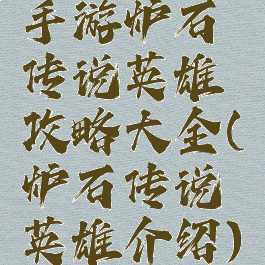 手游炉石
传说英雄
攻略大全(
炉石传说
英雄介绍)